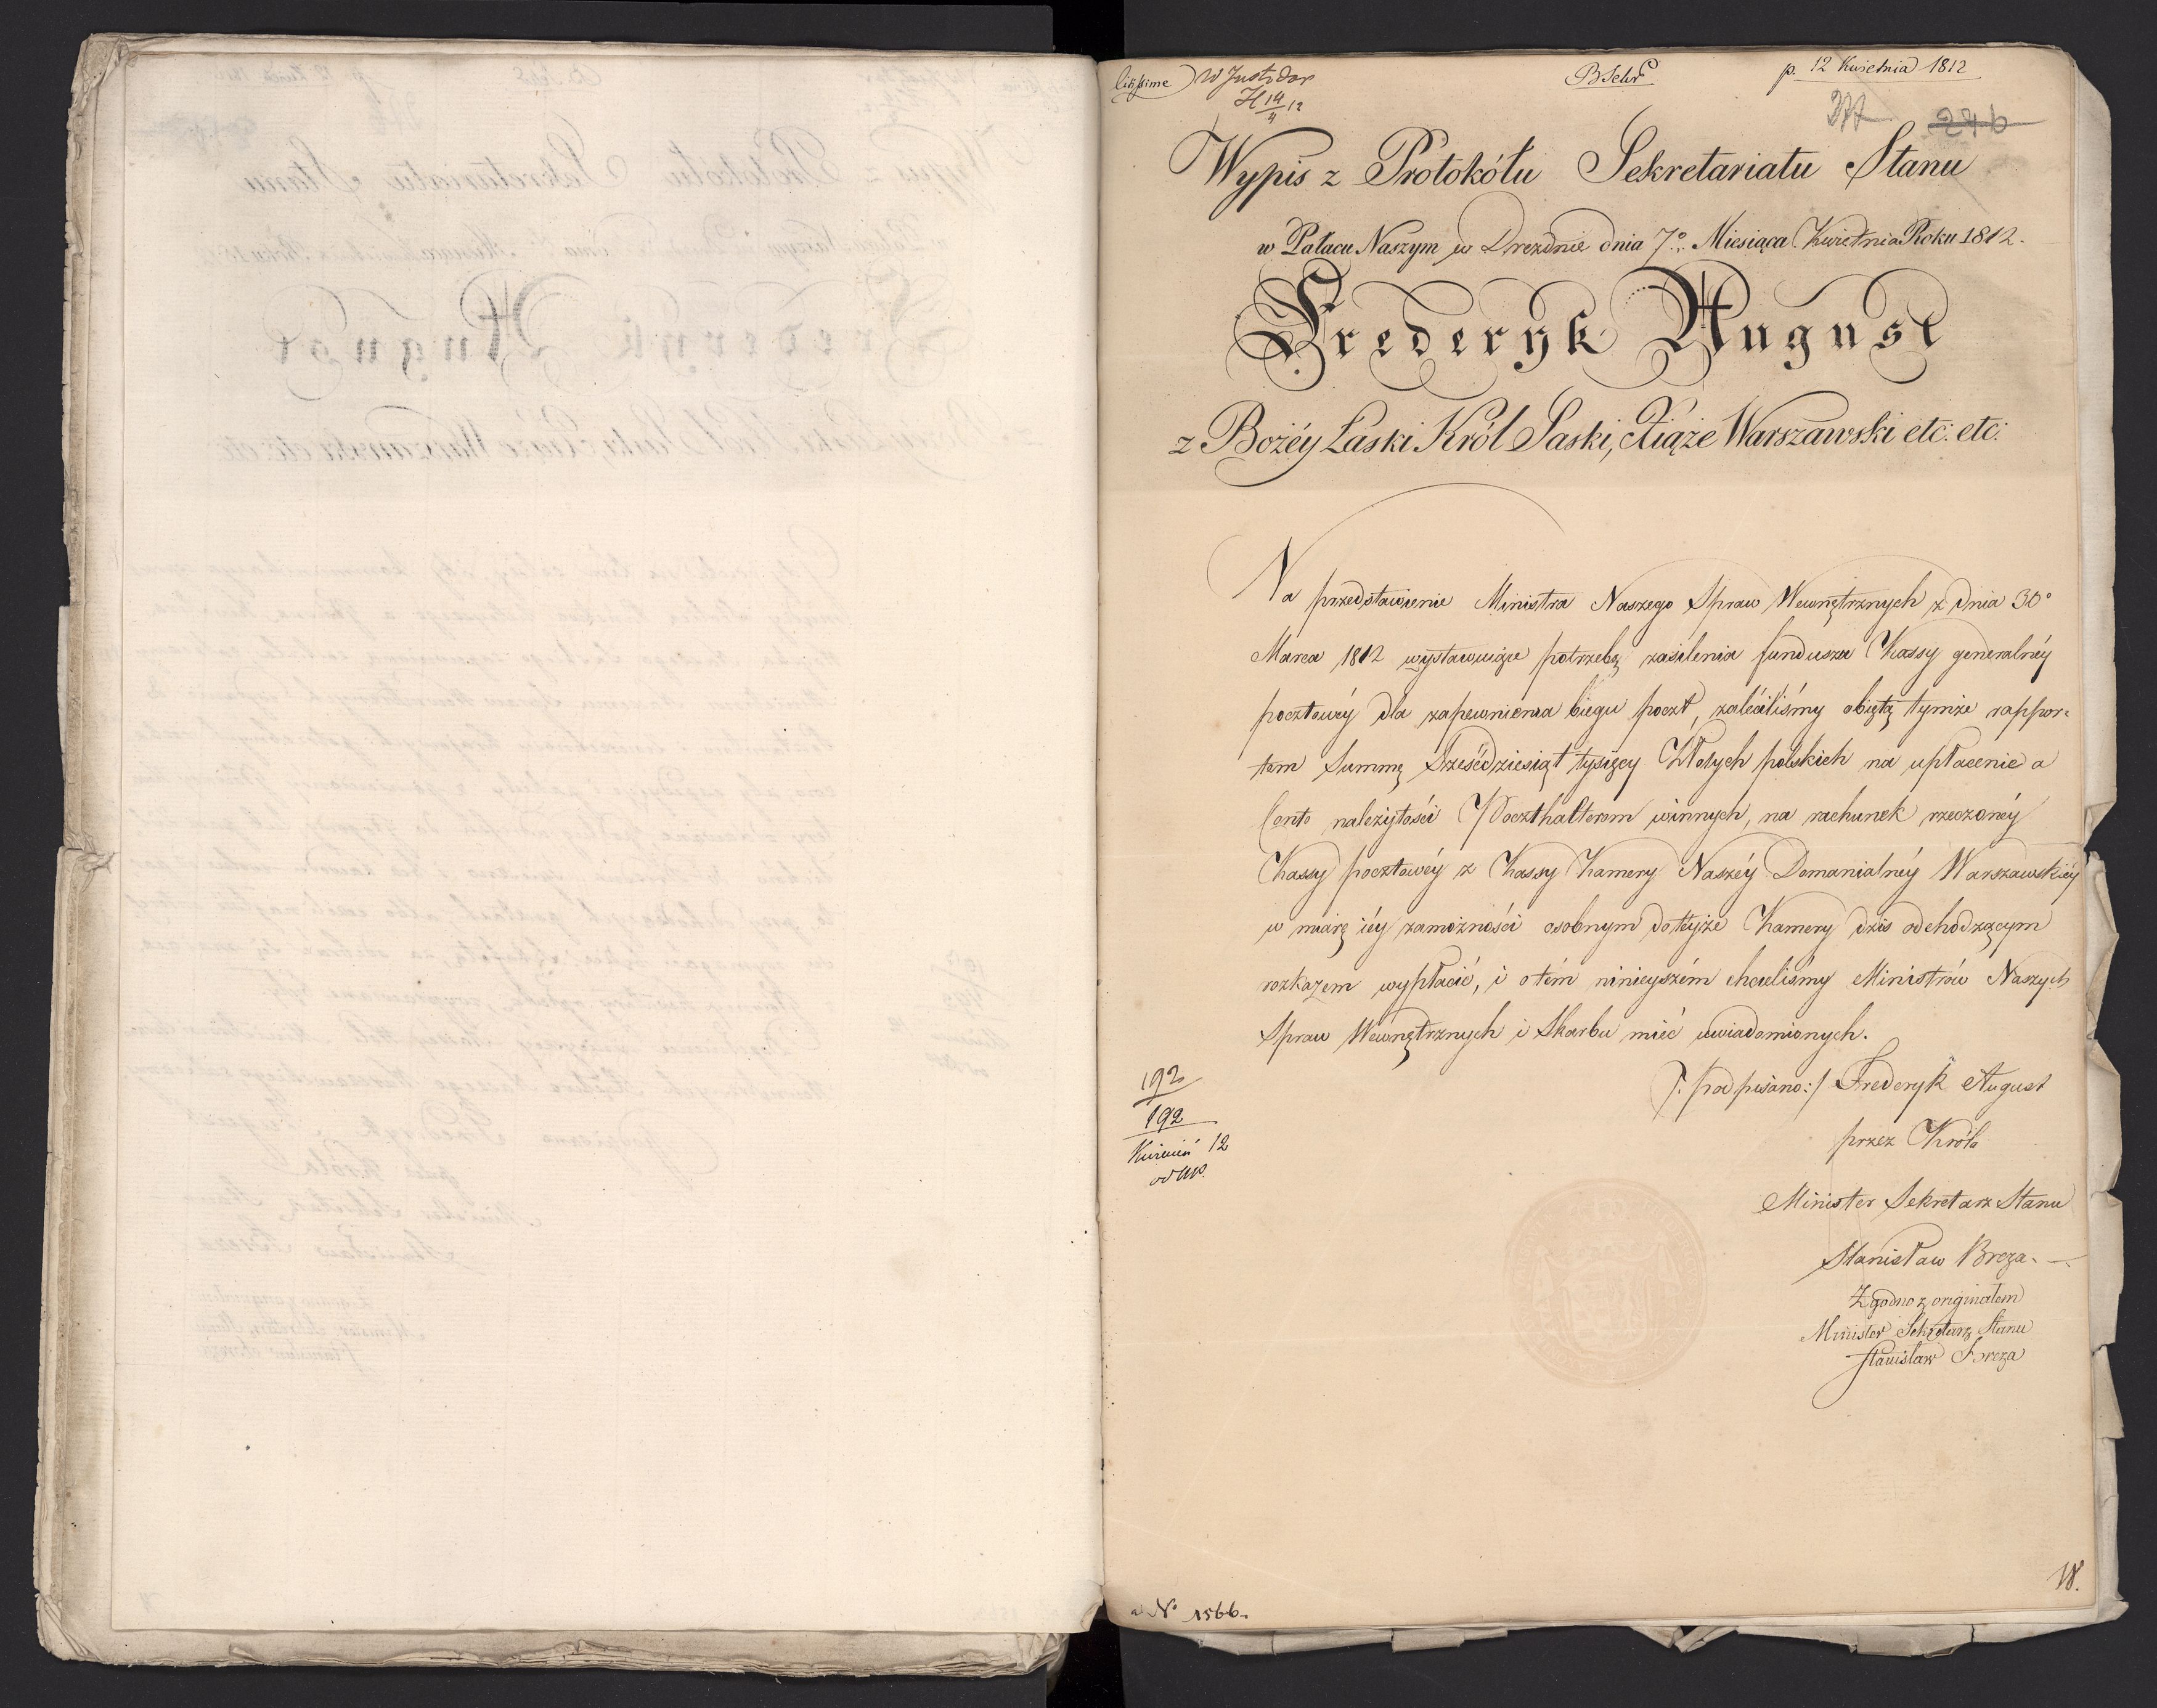 citissime W Just. Dor
H 14/4 12
BSekr
p. 12 Kwietnia 1812
246
Wypis z Protokółu Sekretariatu Stanu
w Pałacu Naszym w Dreźdnie dnia 7º Miesiąca Kwietnia Roku 1812.
Frederyk August
z Bożéy Łaski Król Saski, Xiąże Warszawski etc: etc:
Na przedstawienie Ministra Naszego Spraw Wewnętrznych z dnia 30º
Marca 1812 wystawuiące potrzebę zasilenia fundusza Kassy generalnéy
pocztowéy dla zapewnienia biegu poczt, zaleciliśmy obiętą tymże rappor-
tem Summę Sześćdziesiąt tysięcy Złotych polskich na upłacenie a
Conto należytości Poczthalterom winnych, na rachunek rzeczonéy
Kassy pocztowéy z Kassy Kamery Naszéy Domanialnéy Warszawskiéy
w miarę iéy zamożności osobnym do téyże Kamery dziś odchodzącym
rozkazem wypłacić, i o tém ninieyszém chcieliśmy Ministrów Naszych
Spraw Wewnętrznych i Skarbu mieć uwiadomionych.
/: podpisano :/ Frederyk August
przez Króla
Minister Sekretarz Stanu
Stanisław Breza.
Zgodno z originałem
Minister Sekretarz Stanu
Stanisław Breza
192
192
Kwiecień 12
Nº 1566.
18.